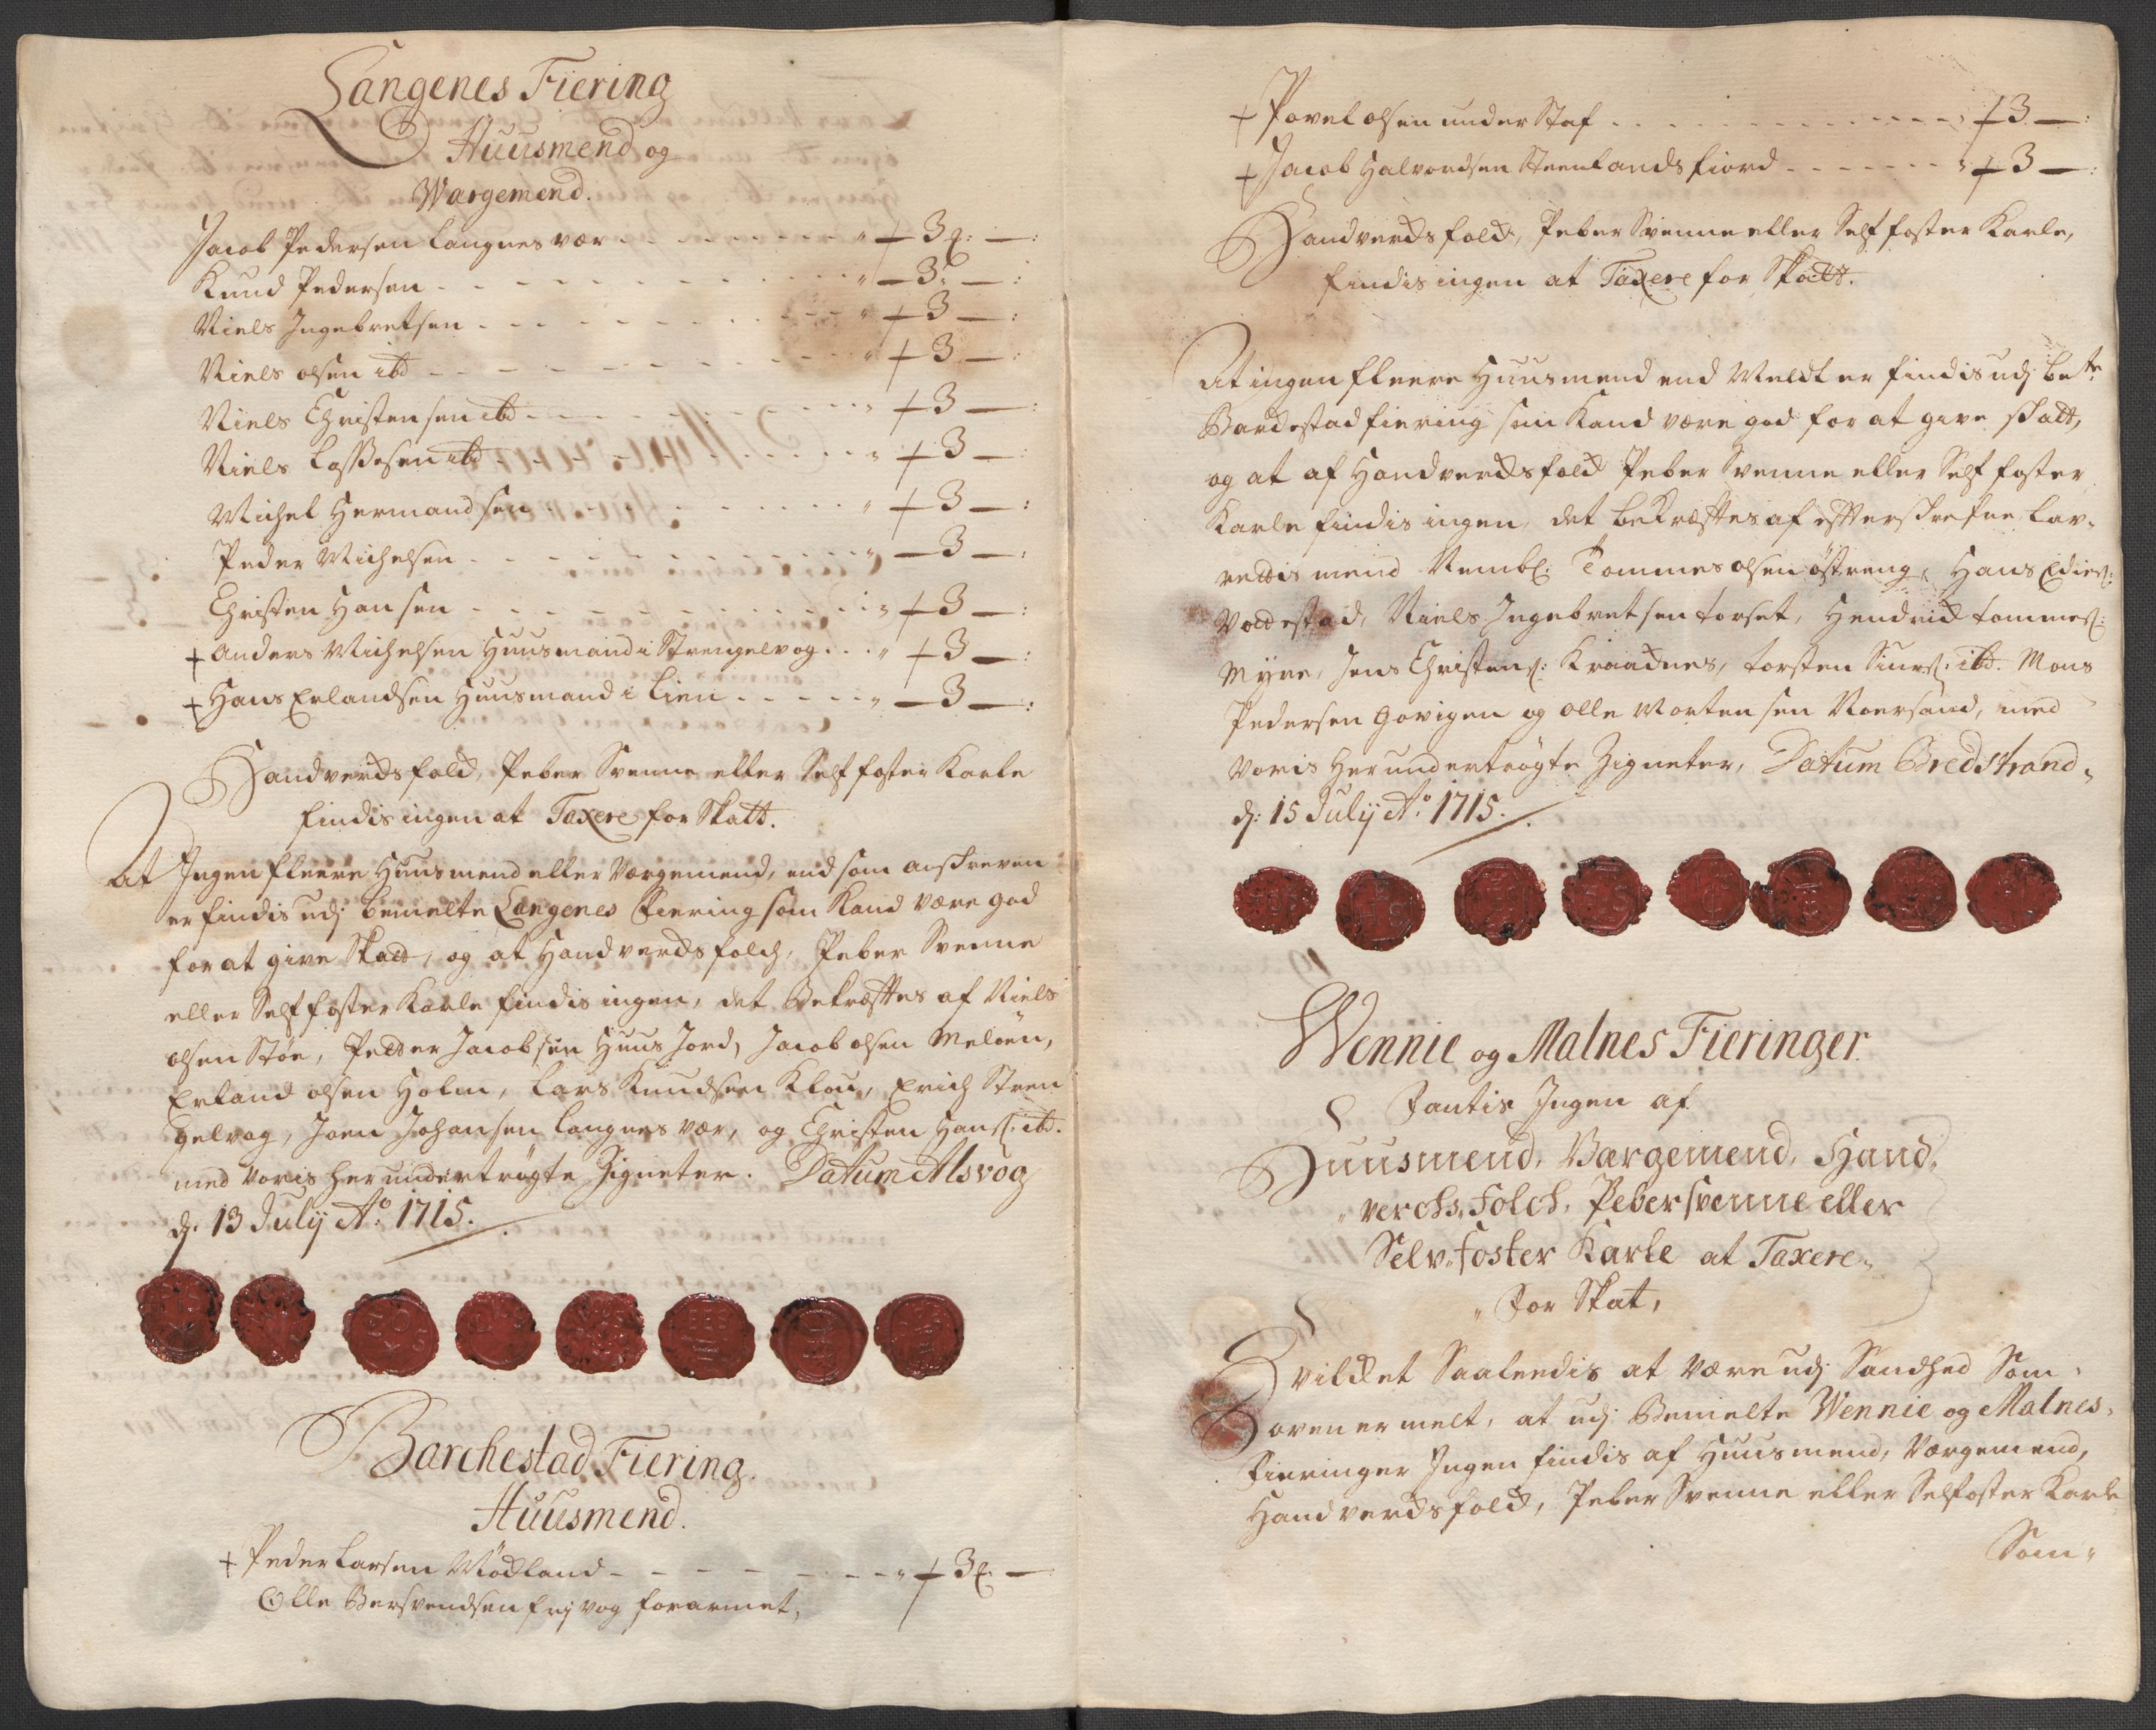 Langenes Fiering
Huusmend og
Wærgemend.
Jacob Pedersen Langnes vær - - - - - - - " — 3 — :
Knud Pedersen - - - - - - - - - " — 3 — :
Niels Ingebretsen - - - - - - - - - " — 3 — :
Niels olsen ibd - - - - - - - - - " — 3 — :
Niels Christensen ibd - - - - - - - - " — 3 — :
Niels Lassesen ibd - - - - - - - - " — 3 — :
Michel Hermandsen - - - - - - - - " — 3 — :
Peder Michelsen - - - - - - - - - " — 3 — :
Christen Hansen - - - - - - - - - " — 3 — :
+ Anders Michelsen Huusmand i Strengelvog . . . " — 3 — :
+ Hans Erlandsen Huusmand i Lien - - - - - " — 3 — :
Handverchsfolch, Peber Svenne eller Self foster Karle
findis ingen at Taxere for Skatt.
At Ingen fleere Huusmend eller Værgemend, end som anskreven
er findis udj bemelte Langenes Fiering som Kand være god
for at give Skatt, og at Handverchsfolch, Peber Svenne
eller Self foster Karle findis ingen, det Bekræfftes af Niels
olsen Støe, Petter Jacobsen Huus Jord, Jacob olsen Meløen,
Erland olsen Holm, Lars Knudsen Klou, Erich Stren
gelvog, Joen Johansen Langnes vær, og Christen Hans: ibd.
med voris her undertrøgte Zigneter. Datum Alsvog
d: 13 Julij Ao: 1715.
Barchestad Fiering.
Huusmend.
+ Peder Larsen Mödland - - - - - - - " — 3 —
Olle Bersvendsen frj vog forarmet,
+ Povel olsen under Staf - - - - - - - - - — 3 — :
+ Jacob Halvordsen Steenlands fiord - - - - - - — 3 — :
Handverchsfolch, Peber Svenne eller Self foster Karle,
findis ingen at Taxere for Skatt.
At ingen fleere Huusmend end Meldt er findis udj bete
Barchestad fiering som Kand være god for at give skatt,
og at af Handverchsfolch Peber Svenne eller Self foster
Karle findis ingen, det bekræfftes af efftterskrefne Lav-
rettis mend Nembl: Tommes olsen östreng, Hans Edies:
Vottestad, Niels Ingebretsen forset, Hendrich tommes:
Myre, Jens Christens: Kraacknes, torsten Siurs: ibd. Mons
Pedersen Govigen og olle Mortensen Roersand, med
voris Her undertrøgte Zigneter, Datum Bredstrand,
d: 15 Julij Ao: 1715.
Wennie og Malnes Fieringer.
Fantis Ingen af
Huusmend, Værgemend, Hand,
"verchs, Folch, Peber svenne eller
Selv, foster Karle at Taxere,
" For Skat,
Hvilchet Saaleedis at være udj Sandhed Som,
oven er melt, at udj Bemelte Wennie og Malnes,
Fieringer Ingen findis af Huusmend, Værgemend,
Handverchsfolch, Peber Svenne eller Selfoster Karle
Som"